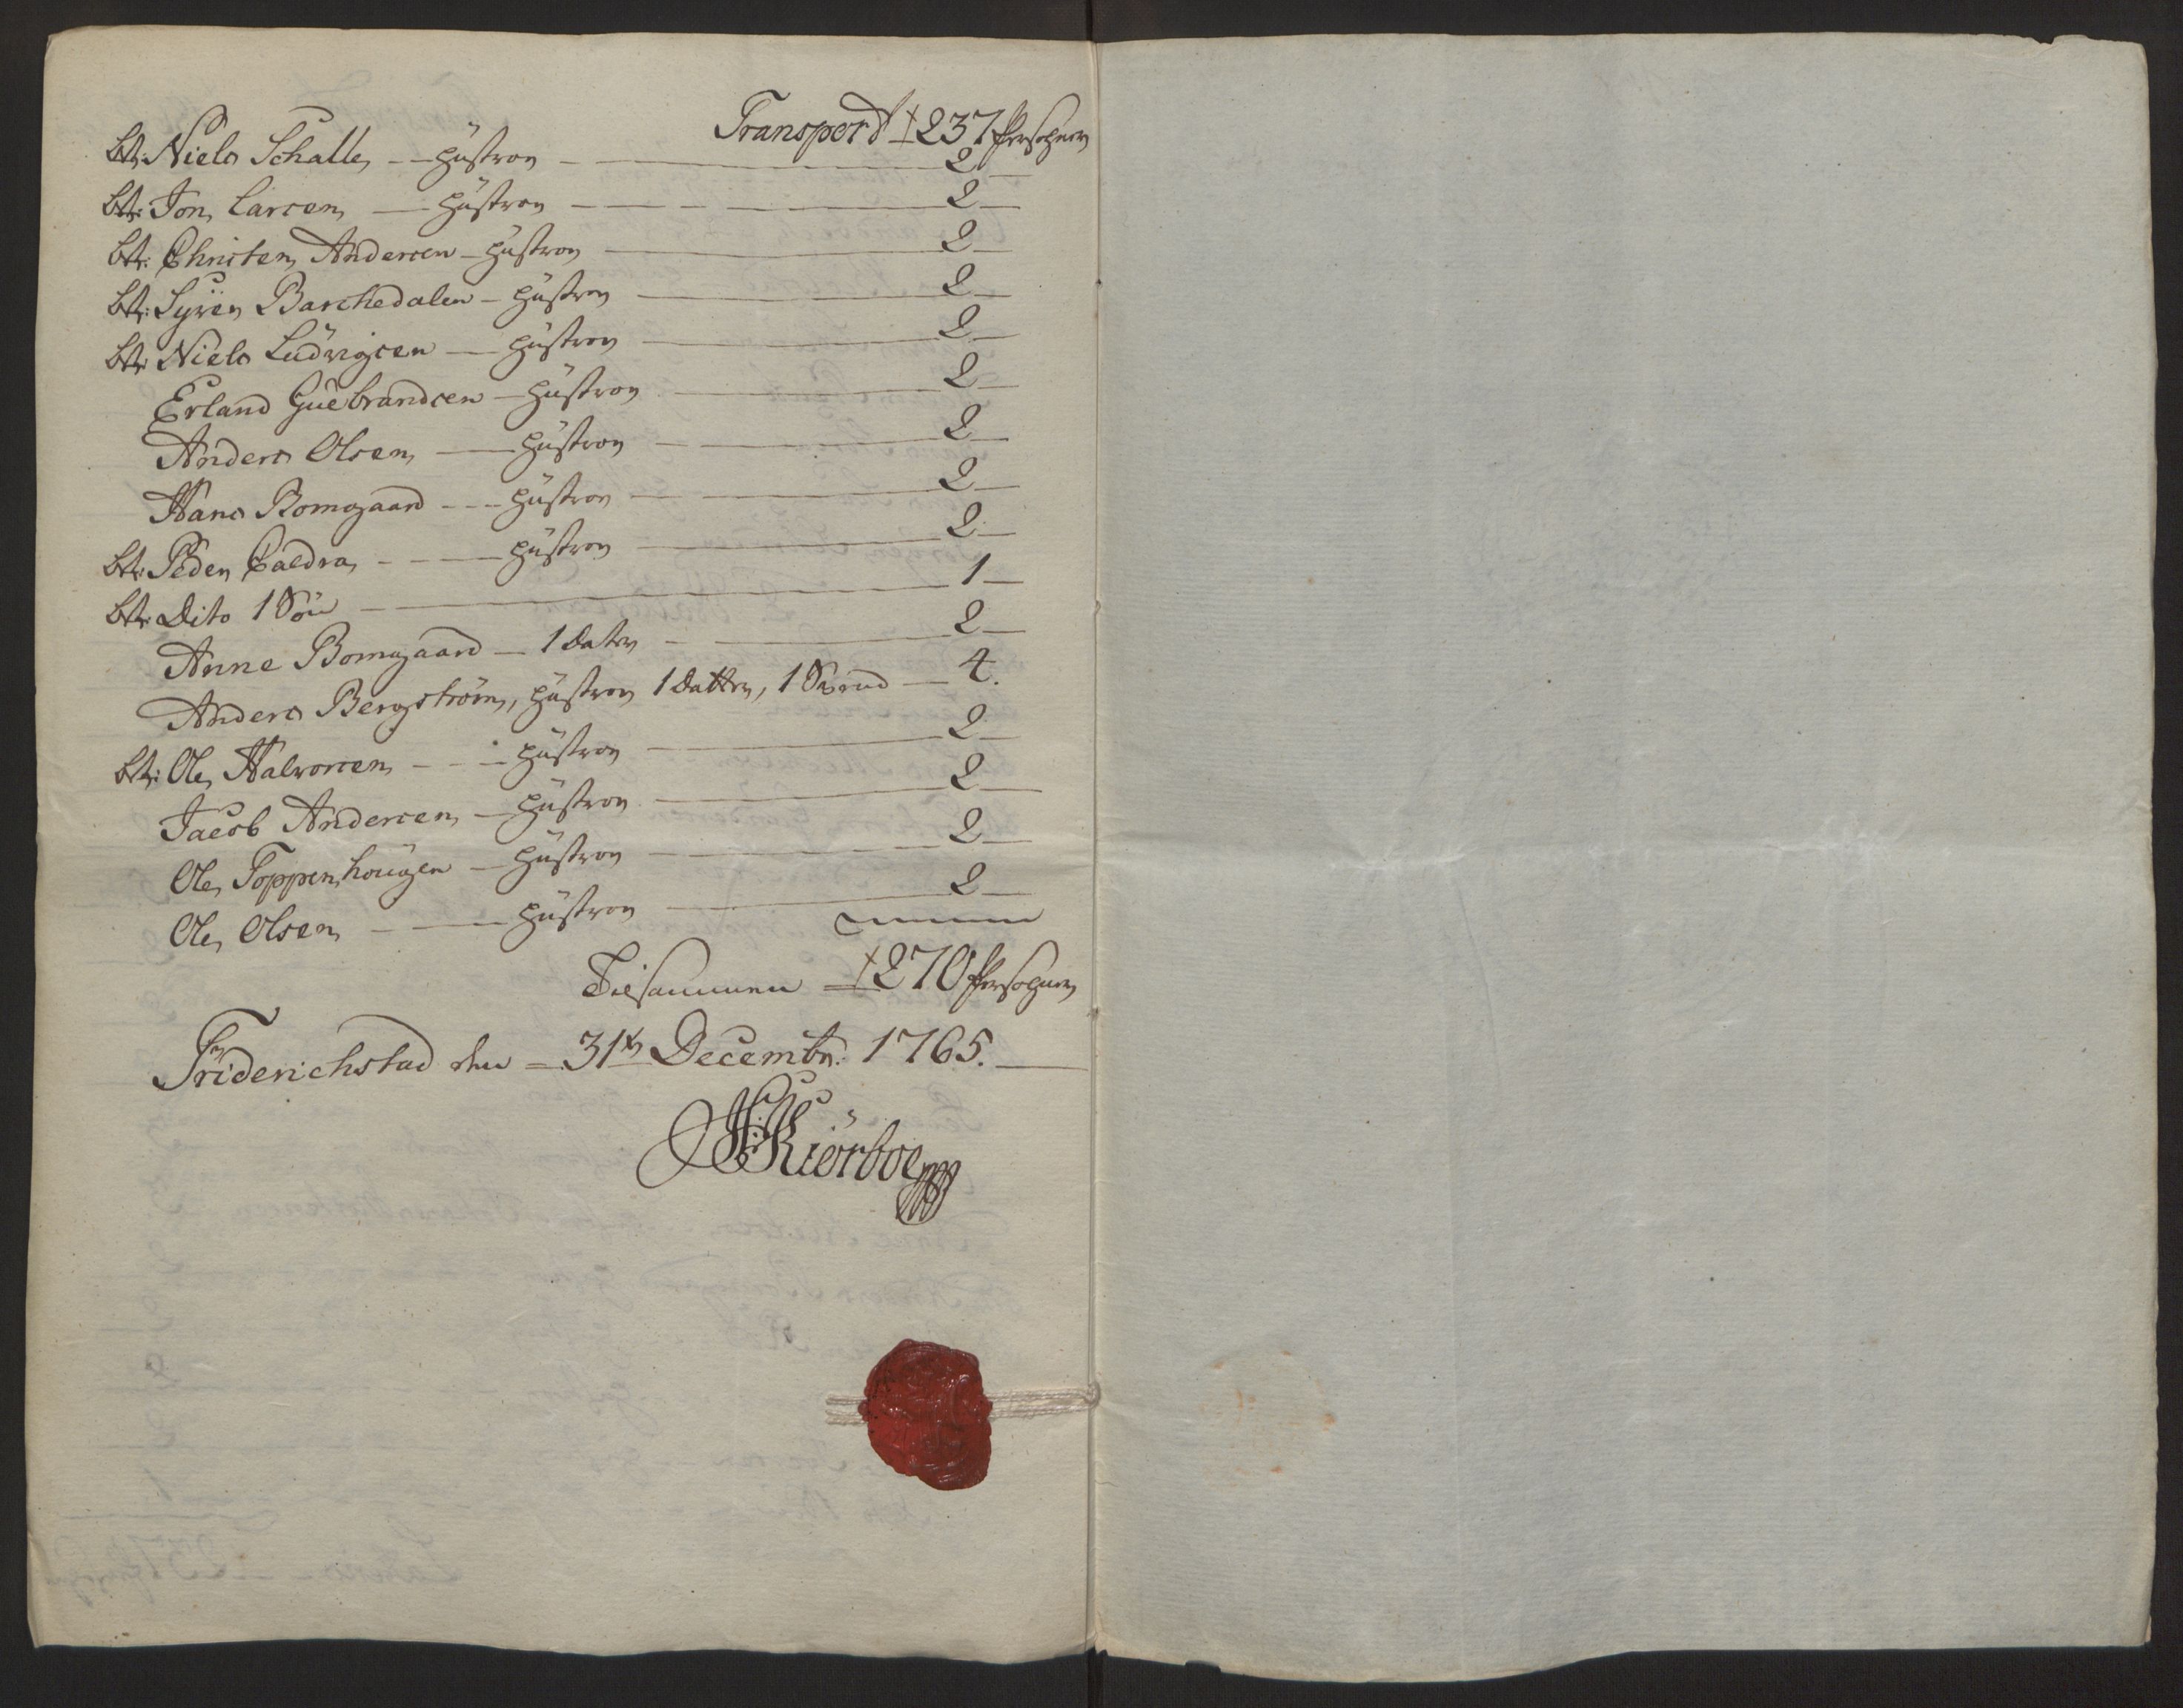 Transport ‡ 237 Persohner
btr: Niels Schalle, — hustrou — 2
btr: Jon Larsen — hustrou — 2
btr: Christen Andersen — hustrou — 2
btr: Syven Barchedalen — hustrou — 2
btr: Niels Ludvigsen — hustrou — 2
Erland Guebrandsen — hustrou — 2
Anders Olsen — hustrou — 2
Hans Bomgaard — hustrou — 2
btr: Peder — hustrou — 2
btr: Dito 1 Søn — 1
Anne Bomgaard — 1 dater — 2
Anders Bergstrøm, hustrou 1 datter, 1 Svend — 4.
btr: Ole Halvorsen — hustrou — 2
Jacob Andersen — hustrou — 2
Ole Toppenhougen — hustrou — 2
Ole Olsen — hustrou — 2
Tilsammen ‡ 270 Persohner
Friderichstad den 31te Decembr: 1765.
Kiörboe